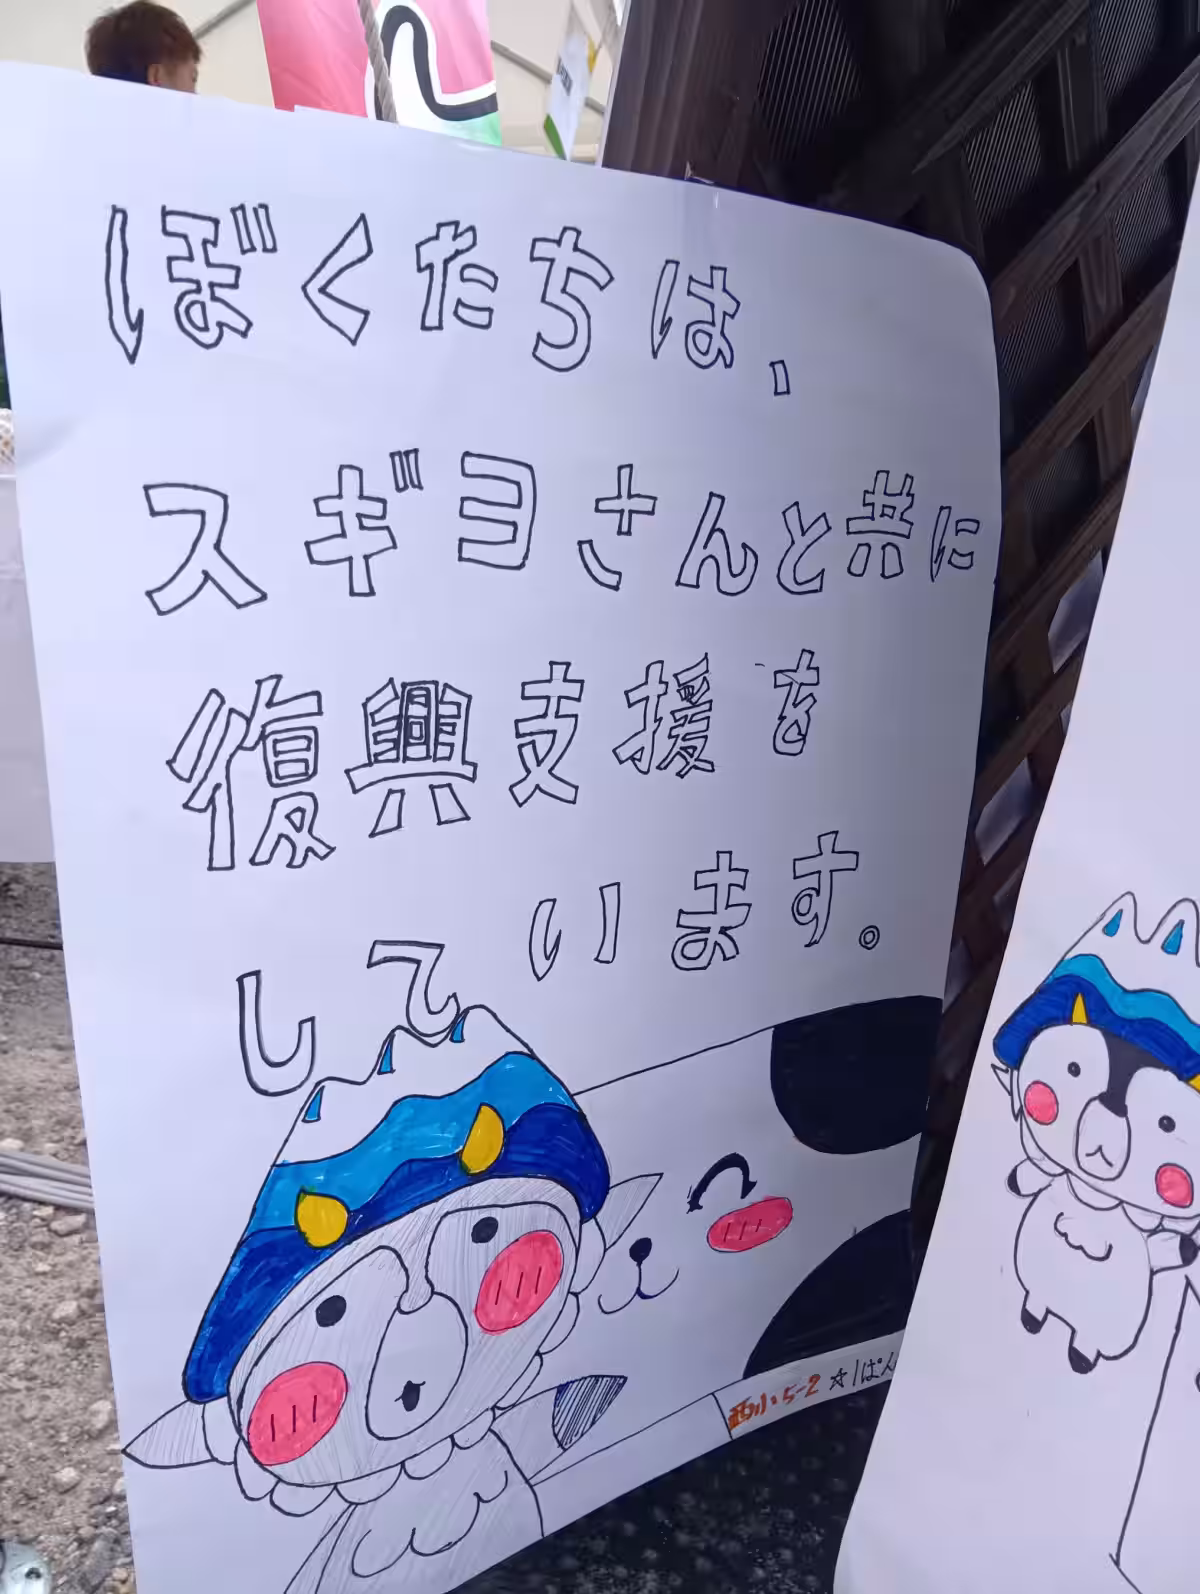 ぼくたちは、
スギヨさんと共に
復興支援を
しています。
西小5-2 ☆ぱん